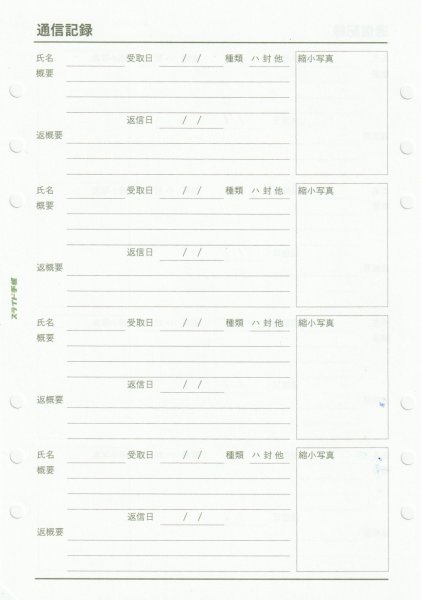 通信記録
氏名 受取日 / / 種類 ハ 封 他 縮小写真
概要
返信日 / /
返概要
氏名 受取日 / / 種類 ハ 封 他 縮小写真
概要
返信日 / /
返概要
氏名 受取日 / / 種類 ハ 封 他 縮小写真
概要
返信日 / /
返概要
氏名 受取日 / / 種類 ハ 封 他 縮小写真
概要
返信日 / /
返概要